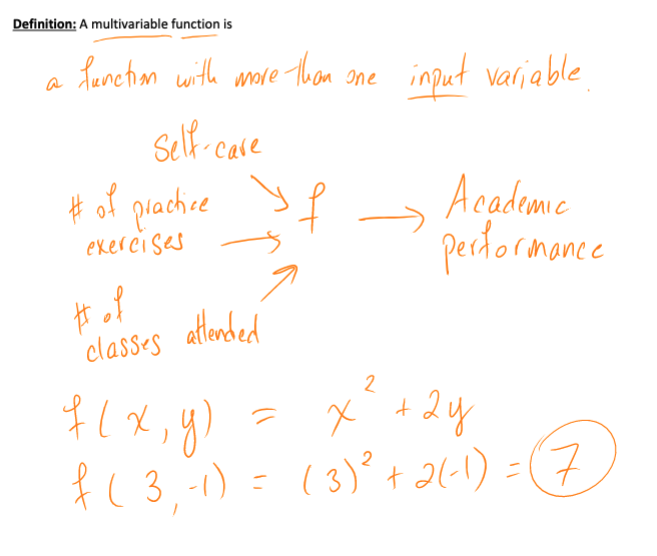 Definition: A multivariable function is
a function with more than one input variable.
Self-care
# of practice
exercises
f → Academic
performance
# of
classes attended
f(x,y) = x² + 2y
f(3,-1) = (3)² + 2(-1) = 7